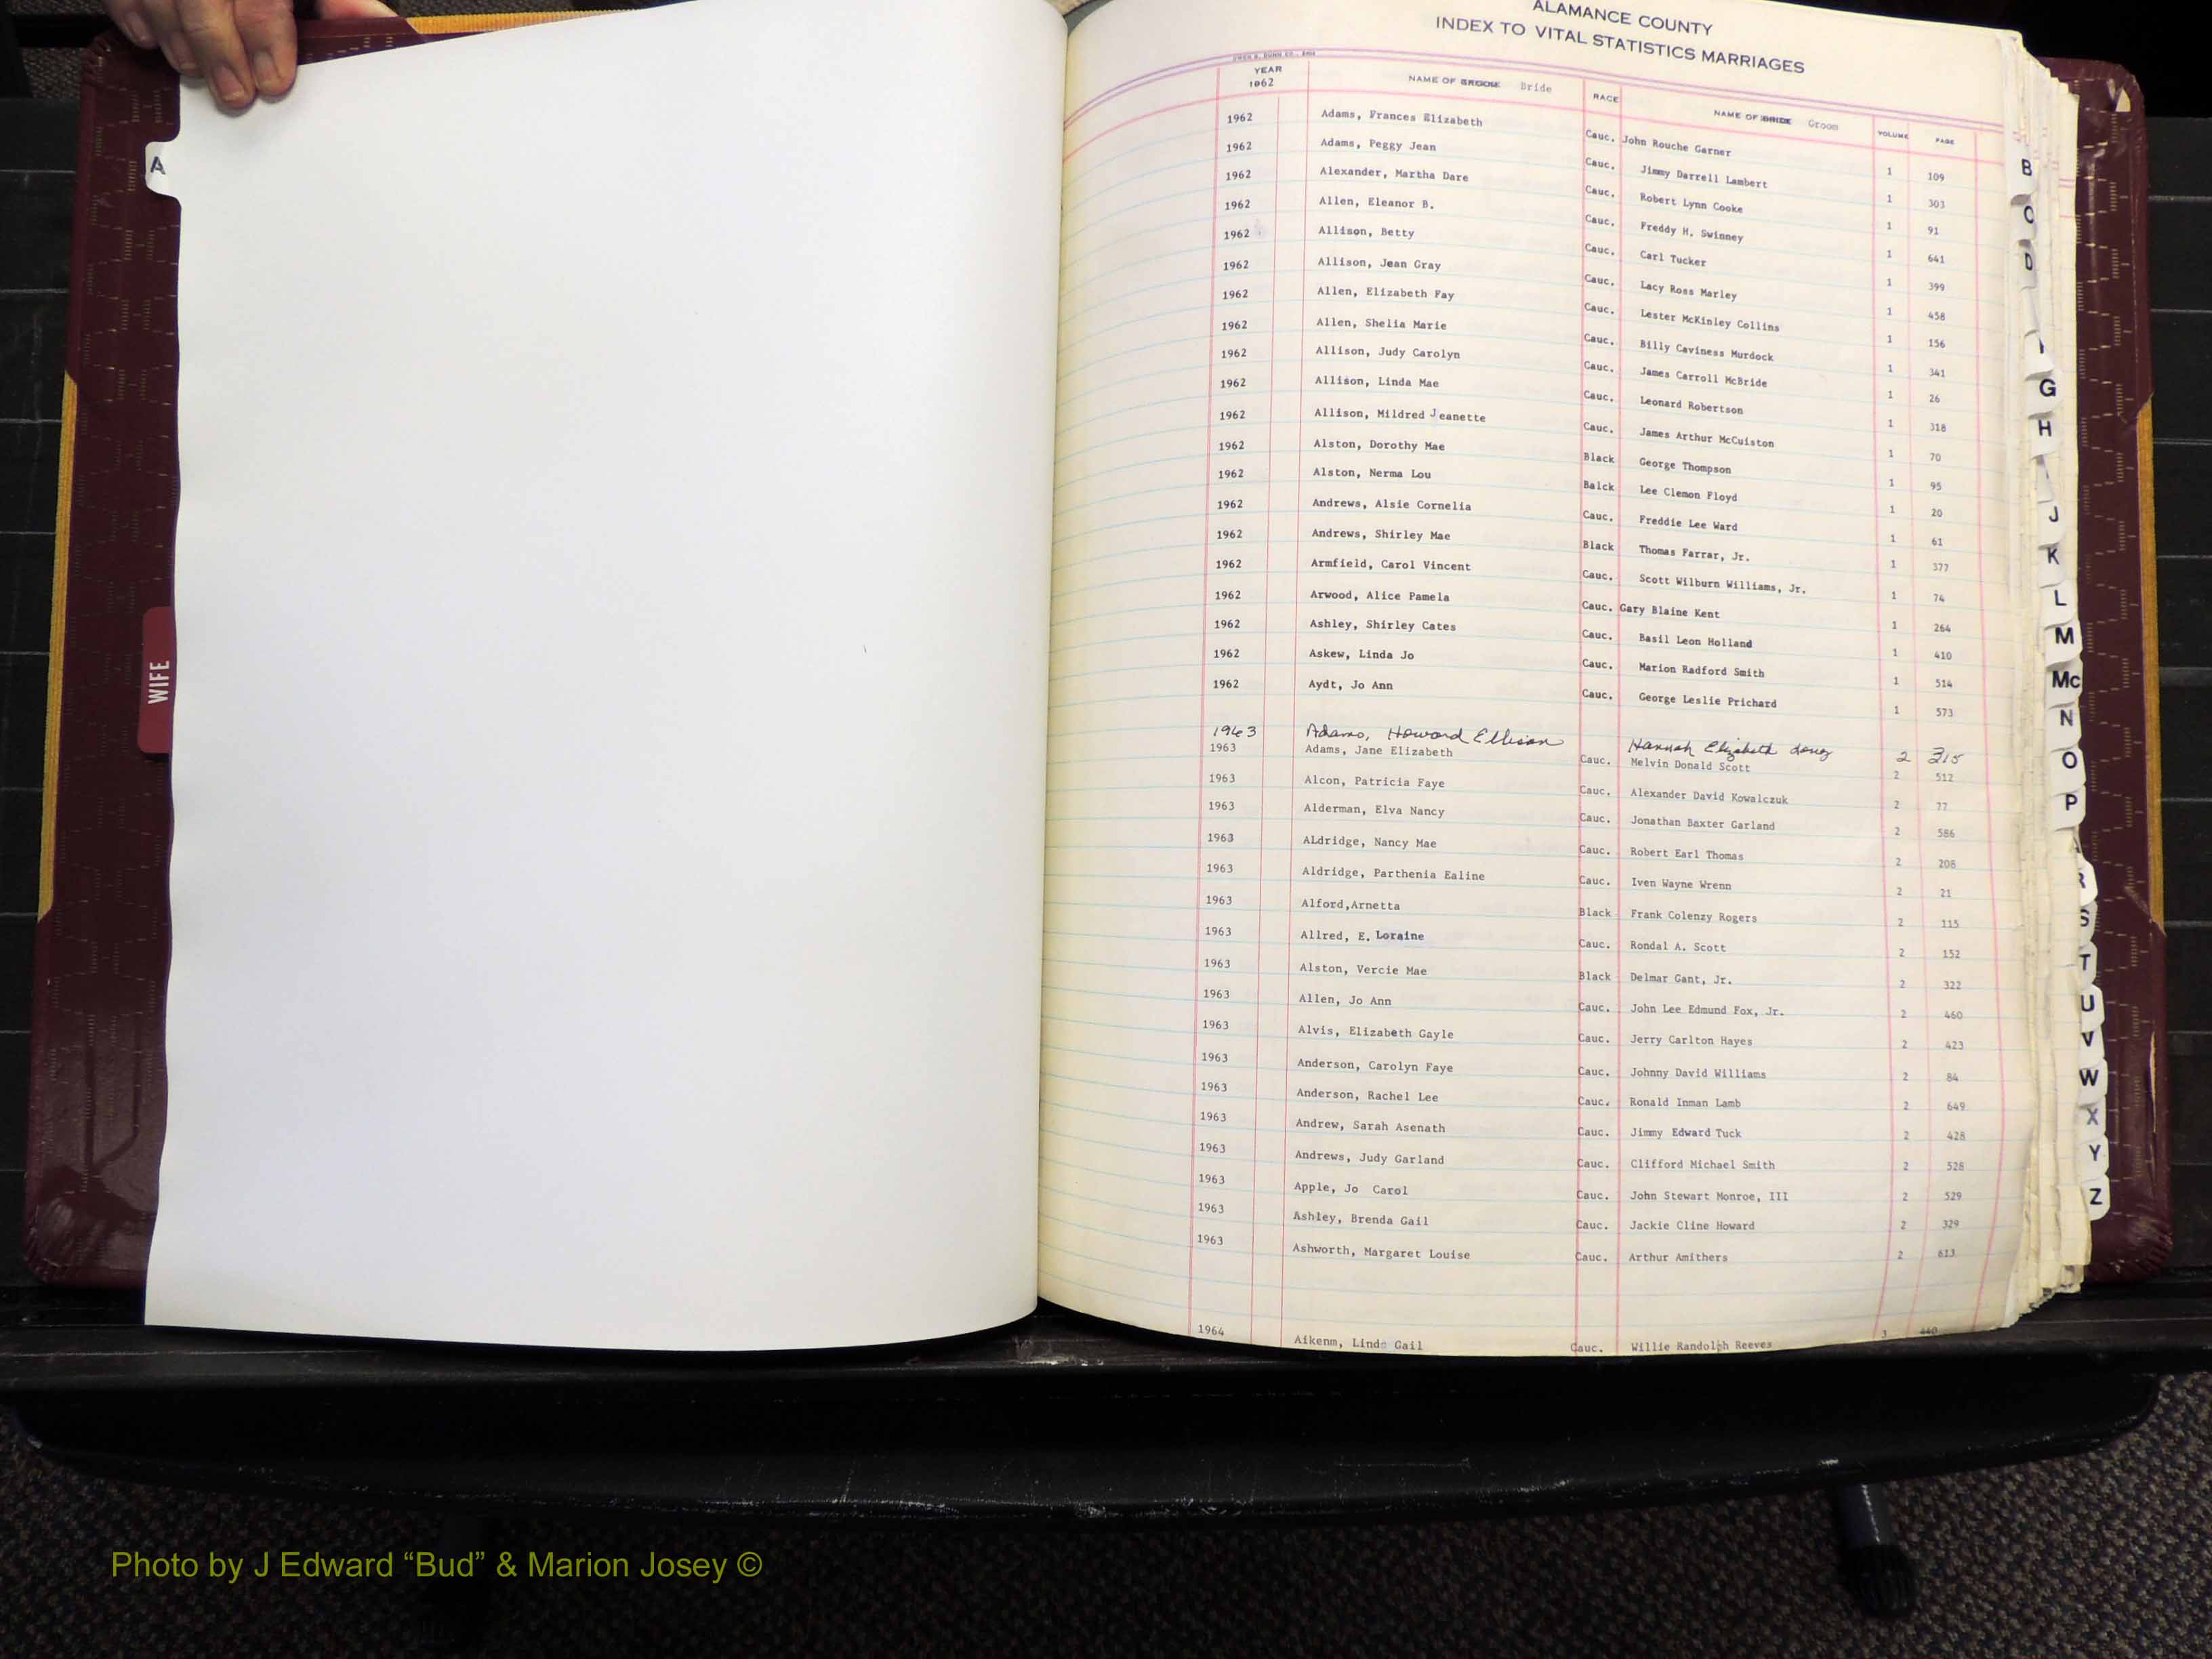 ALAMANCE COUNTY
INDEX TO VITAL STATISTICS MARRIAGES
OWEN G. DUNN CO.
YEAR 1962 NAME OF GROOM Bride RACE NAME OF BRIDE Groom VOLUME PAGE
1962 Adams, Frances Elizabeth Cauc. John Rouche Garner 1 109
1962 Adams, Peggy Jean Cauc. Jimmy Darrell Lambert 1 303
1962 Alexander, Martha Dare Cauc. Robert Lynn Cooke 1 91
1962 Allen, Eleanor B. Cauc. Freddy H. Swinney 1 641
1962 Allison, Betty Cauc. Carl Tucker 1 399
1962 Allison, Jean Gray Cauc. Lacy Ross Marley 1 458
1962 Allen, Elizabeth Fay Cauc. Lester McKinley Collins 1 156
1962 Allen, Shelia Marie Cauc. Billy Caviness Murdock 1 341
1962 Allison, Judy Carolyn Cauc. James Carroll McBride 1 26
1962 Allison, Linda Mae Cauc. Leonard Robertson 1 318
1962 Allison, Mildred Jeanette Cauc. James Arthur McCuiston 1 70
1962 Alston, Dorothy Mae Black George Thompson 1 95
1962 Alston, Nerma Lou Balck Lee Clemon Floyd 1 20
1962 Andrews, Alsie Cornelia Cauc. Freddie Lee Ward 1 61
1962 Andrews, Shirley Mae Black Thomas Farrar, Jr. 1 377
1962 Armfield, Carol Vincent Cauc. Scott Wilburn Williams, Jr. 1 74
1962 Arwood, Alice Pamela Cauc. Gary Blaine Kent 1 264
1962 Ashley, Shirley Cates Cauc. Basil Leon Holland 1 410
1962 Askew, Linda Jo Cauc. Marion Radford Smith 1 514
1962 Aydt, Jo Ann Cauc. George Leslie Prichard 1 573
1963 Adams, Howard Ellison Hannah Elizabeth Long 2 315
1963 Adams, Jane Elizabeth Cauc. Melvin Donald Scott 2 512
1963 Alcon, Patricia Faye Cauc. Alexander David Kowalczuk 2 77
1963 Alderman, Elva Nancy Cauc. Jonathan Baxter Garland 2 586
1963 ALdridge, Nancy Mae Cauc. Robert Earl Thomas 2 208
1963 Aldridge, Parthenia Ealine Cauc. Iven Wayne Wrenn 2 21
1963 Alford,Arnetta Black Frank Colenzy Rogers 2 115
1963 Allred, E. Loraine Cauc. Rondal A. Scott 2 152
1963 Alston, Vercie Mae Black Delmar Gant, Jr. 2 322
1963 Allen, Jo Ann Cauc. John Lee Edmund Fox, Jr. 2 460
1963 Alvis, Elizabeth Gayle Cauc. Jerry Carlton Hayes 2 423
1963 Anderson, Carolyn Faye Cauc. Johnny David Williams 2 84
1963 Anderson, Rachel Lee Cauc. Ronald Inman Lamb 2 649
1963 Andrew, Sarah Asenath Cauc. Jimmy Edward Tuck 2 428
1963 Andrews, Judy Garland Cauc. Clifford Michael Smith 2 528
1963 Apple, Jo Carol Cauc. John Stewart Monroe, III 2 529
1963 Ashley, Brenda Gail Cauc. Jackie Cline Howard 2 329
1963 Ashworth, Margaret Louise Cauc. Arthur Amithers 2 613
1964 Aikenm, Linda Gail Cauc. Willie Randolph Reeves 3 440
A
WIFE
B
C
D
G
H
I
J
K
L
M
Mc
N
O
P
R
S
T
U
V
W
X
Y
Z
Photo by J Edward “Bud” & Marion Josey ©